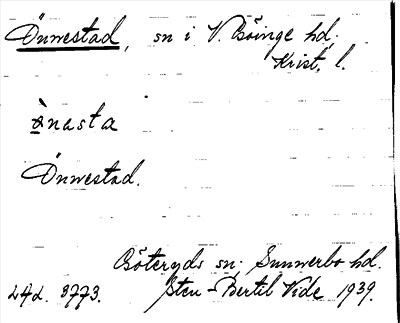 Önnestad, sn i V. Göinge hd.
Krist. l.
ö̀nasta
Önnestad.
Göteryds sn. Sunnerbo hd.
LAL. 3773. Sten-Bertil Vide 1939.